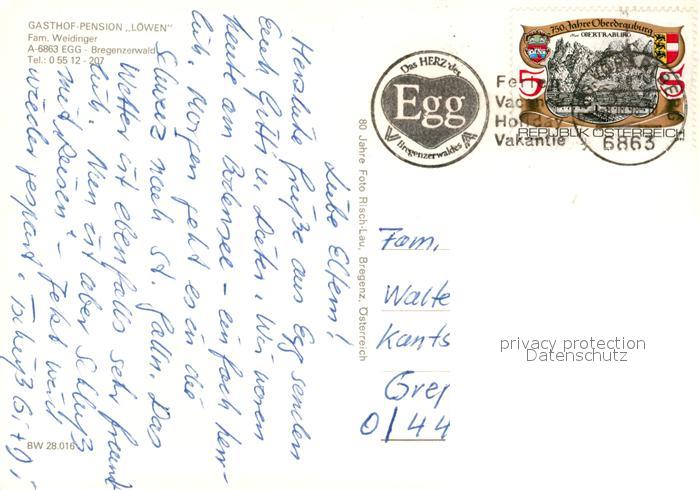 GASTHOF-PENSION „LÖWEN"
Fam. Weidinger
A-6863 EGG - Bregenzerwald
Tel.: 0 55 12 - 207
Liebe Eltern!
Herzliche Grüße aus Egg senden
Euch Gitti u. Dieter. Wir waren
heute am Bodensee - einfach herr-
lich. Morgen geht es in die
Schweiz nach St. Gallen. Das
Wetter ist ebenfalls sehr freund-
lich. Nun ist aber Schluß
mit Reisen - jetzt wird
wieder gespart. Tschüß Gi + Di
BW 28.016
80 Jahre Foto Risch-Lau, Bregenz, Österreich
Das HERZ des
Egg
Bregenzerwaldes
Vakantie
6863
750 Jahre Oberdrauburg
OBERTRABURG
5 S
REPUBLIK ÖSTERREICH
Fam.
Walte
Kants
Grei
0/44
privacy protection
Datenschutz